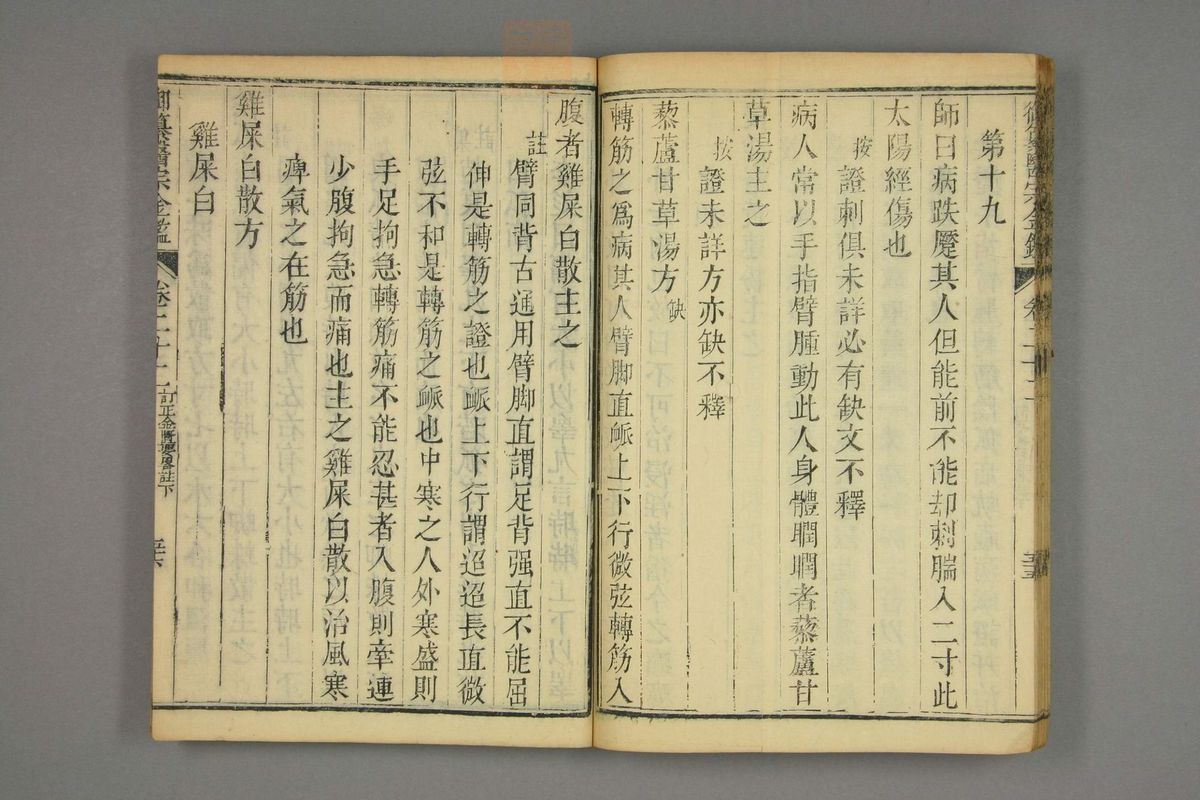 第十九
師曰病趺蹷其人但能前不能却刺腨入二寸此
太陽經傷也
按
證刺俱未詳必有缺文不釋
病人常以手指臂腫動此人身體瞤瞤者藜蘆甘
草湯主之
按
證未詳方亦缺不釋
藜蘆甘草湯方缺
轉筋之爲病其人臂脚直脈上下行微弦轉筋入
腹者雞屎白散主之
註
臂同背古通用臂脚直謂足背强直不能屈
伸是轉筋之證也脈上下行謂迢迢長直微
弦不和是轉筋之脈也中寒之人外寒盛則
手足拘急轉筋痛不能忍甚者入腹則牽連
少腹拘急而痛也主之雞屎白散以治風寒
痺氣之在筋也
雞屎白散方
雞屎白
御纂醫宗金鑑
卷二十二
訂正金匱要畧註下